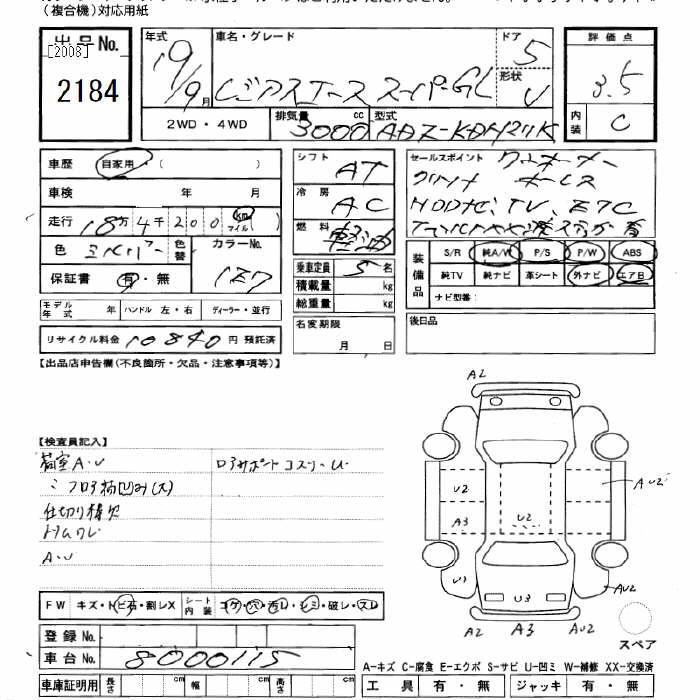 (複合機)対応用紙
出品No. [2008] 2184
年式 19/9月
車名・グレード レジアスエース スーパーGL
ドア 5
形状 V
評価点 3.5
内装 C
2WD・4WD
排気量 3000 cc
型式 ADF-KDH211K
車歴 自家用・( )
車検 年 月
走行 18万4千200 km マイル ( )
色 シルバー 色替 カラーNo. 1E7
保証書 有・無
モデル年式 年 ハンドル 左・右 ディーラー・並行
リサイクル料金 10840円 預託済
シフト AT
冷房 AC
燃料 軽油
乗車定員 5名
積載量 kg
総重量 kg
名変期限
月 日
セールスポイント ワンオーナー
HDDナビ、TV、ETC
装備品 S/R 純A/W P/S P/W ABS
純TV 純ナビ 革シート 外ナビ エアB
ナビ型番:
後日品
【出品店申告欄(不良箇所・欠品・注意事項等)】
【検査員記入】
荷室A・U ロアサポートコスリ・U
〃フロア柄凹み(大)
仕切り棒欠
A・U
FW キズ・トビ石・割レX シート内装 コゲ・穴・汚レ・シミ・破レ・スレ
登録No.
車台No. 8000115
車庫証明用 長さ cm 幅 cm 高さ cm
A2
U2 AU2
A3 U2
U1 U3 AU2
A2 A3 AU2
スペア
A-キズ C-腐食 E-エクボ S-サビ U-凹ミ W-補修 XX-交換済
工具 有・無 ジャッキ 有・無